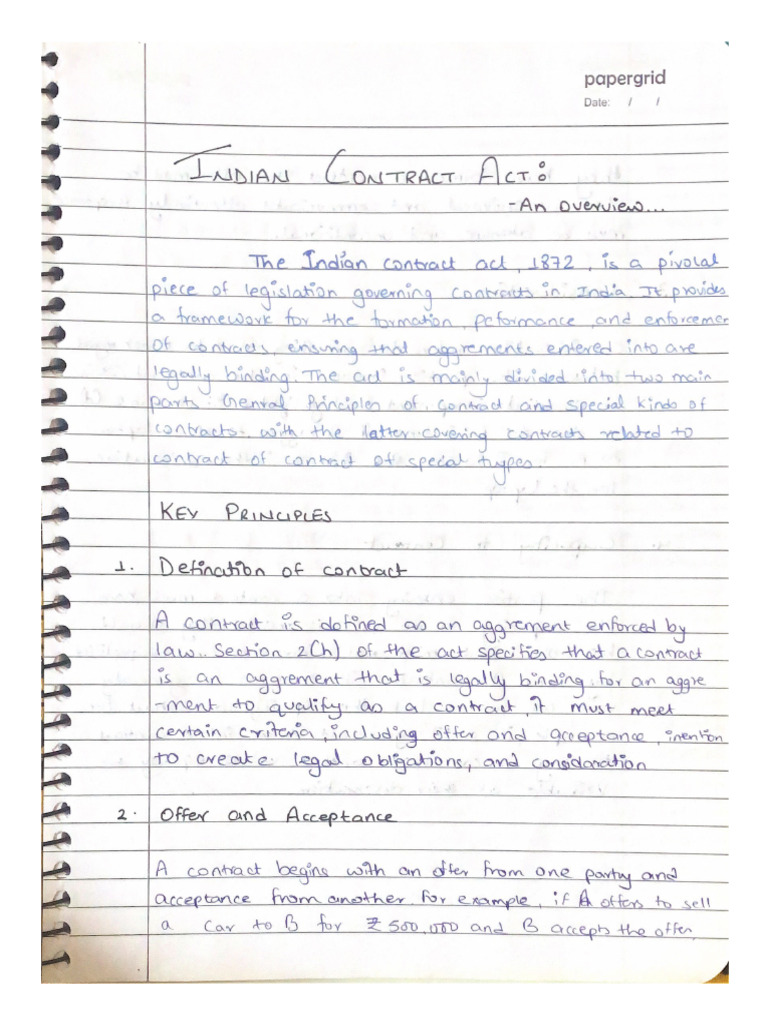 papergrid
Date: / /
INDIAN CONTRACT ACT:
-An overview...
The Indian contract act, 1872, is a pivolal
piece of legislation governing contracts in India. It provides
a framework for the formation, peformance, and enforcemen
of contracts, ensuring that aggrements entered into are
legally binding. The act is mainly divided into two main
parts: Genral Principles of Contract and special kinds of
contracts. with the latter covering contracts related to
contract of contract of special types.
KEY PRINCIPLES
1. Defination of contract
A contract is defined as an aggrement enforced by
law. Section 2(h) of the act specifies that a contract
is an aggrement that is legally binding. for an aggre
-ment to qualify as a contract, it must meet
certain criteria, including offer and acceptance, inention
to create legal obligations, and considaration
2. Offer and Acceptance
A contract begins with an offer from one partry and
acceptance from another. For example, if A offers to sell
a car to B for ₹500,000 and B accepts the offer,